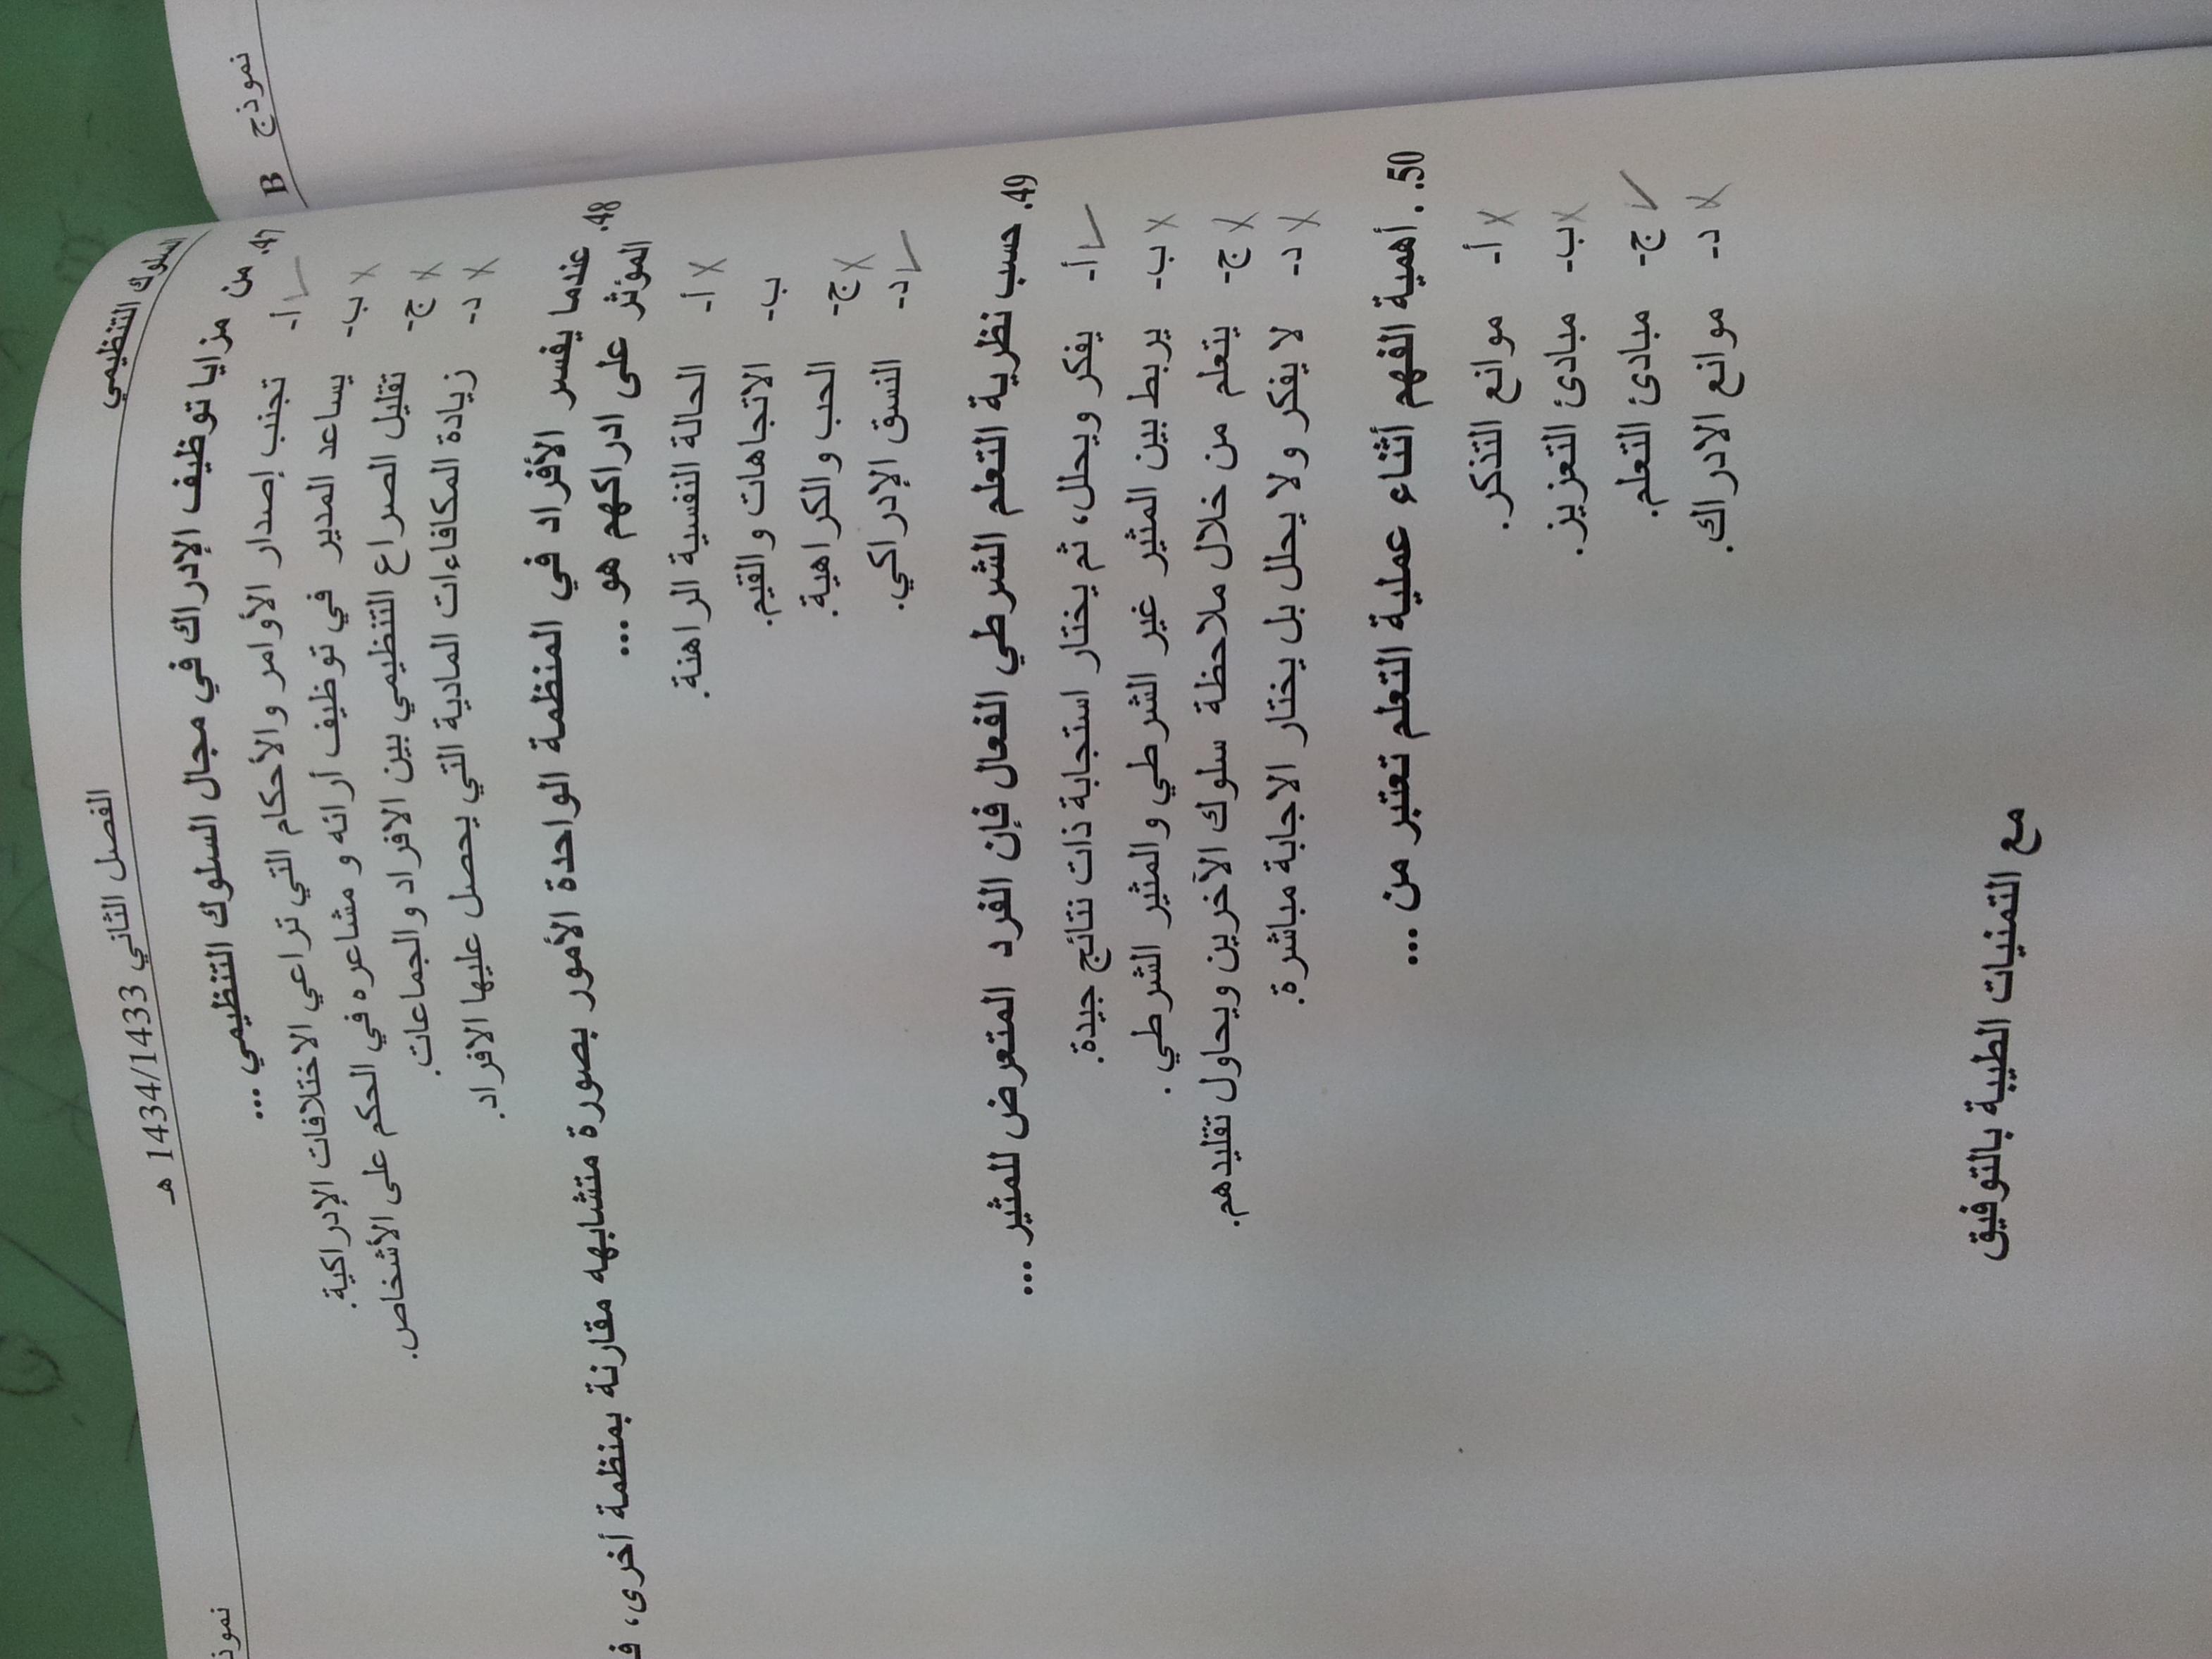 نموذج B
السلوك التنظيمي
الفصل الثاني 1434/1433 هـ
47. من مزايا توظيف الإدراك في مجال السلوك التنظيمي ...
أ- تجنب إصدار الأوامر والأحكام التي تراعي الاختلافات الإدراكية.
ب- يساعد المدير في توظيف أرائه و مشاعره في الحكم على الأشخاص.
ج- تقليل الصراع التنظيمي بين الافراد والجماعات.
د- زيادة المكافاءات المادية التي يحصل عليها الافراد.
48. عندما يفسر الأفراد في المنظمة الواحدة الأمور بصورة متشابهه مقارنة بمنظمة أخرى،
المؤثر على ادراكهم هو ...
أ- الحالة النفسية الراهنة.
ب- الاتجاهات والقيم.
ج- الحب والكراهية.
د- النسق الإدراكي.
49. حسب نظرية التعلم الشرطي الفعال فإن الفرد المتعرض للمثير ...
أ- يفكر ويحلل، ثم يختار استجابة ذات نتائج جيدة.
ب- يربط بين المثير غير الشرطي والمثير الشرطي .
ج- يتعلم من خلال ملاحظة سلوك الآخرين ويحاول تقليدهم.
د- لا يفكر ولا يحلل بل يختار الاجابة مباشرة.
50. . أهمية الفهم أثناء عملية التعلم تعتبر من ...
أ- موانع التذكر.
ب- مبادئ التعزيز.
ج- مبادئ التعلم.
د- موانع الادراك.
مع التمنيات الطيبة بالتوفيق